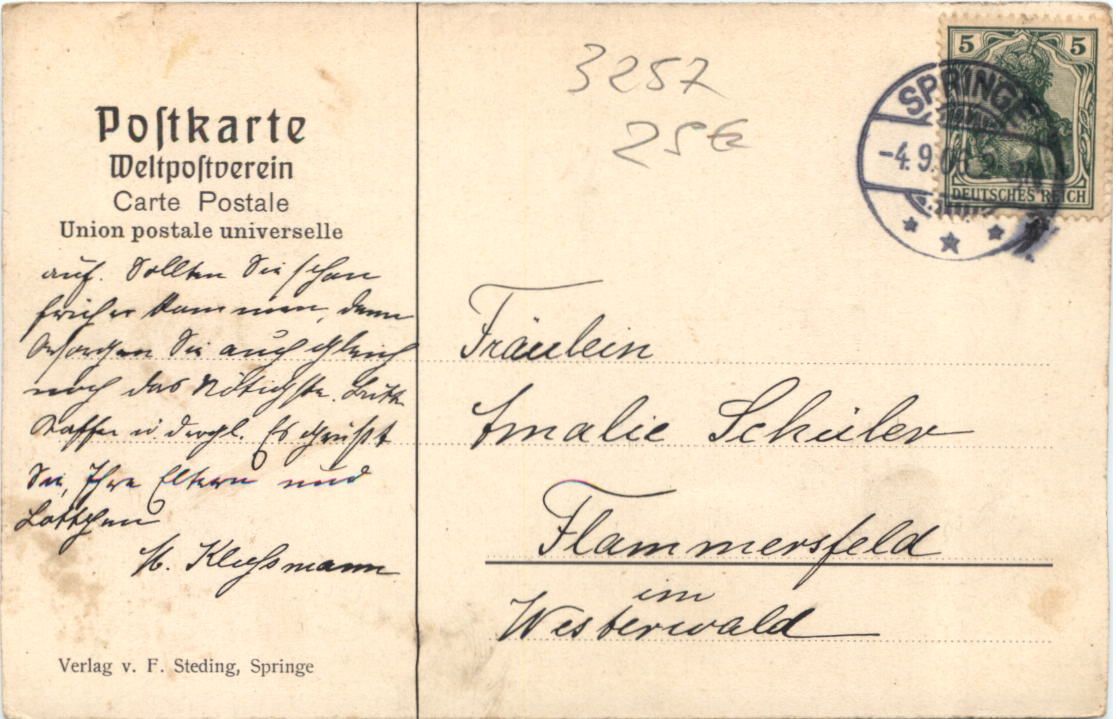 Poſtkarte
Weltpoſtverein
Carte Postale
Union postale universelle
auf. Sollten Sie schon
früher kommen, dann
besorgen Sie auch gleich
noch das Nötigste.
Kaffee u. dergl. Es grüßt
Sie, Ihre Eltern und
Lottchen
Verlag v. F. Steding, Springe
3257
25€
5 5
SPRINGE
-4.9.06
DEUTSCHES REICH
Fräulein
Amalie Schüler
Flammersfeld
im
Westerwald